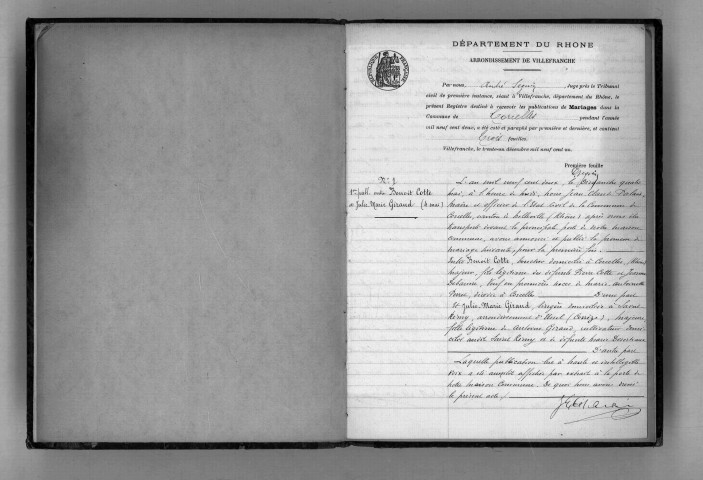 DÉPARTEMENT DU RHÔNE
ARRONDISSEMENT DE VILLEFRANCHE
RÉPUBLIQUE FRANÇAISE
Par nous, André Juge près le Tribunal
civil de première instance, séant à Villefranche, département du Rhône, le
présent Registre destiné à recevoir les publications de Mariages dans la
Commune de Corcelles pendant l'année
mil neuf cent deux, a été coté et paraphé par première et dernière, et contient
trois feuillets.
Villefranche, le trente-un décembre mil neuf cent un.
Première feuille
N° 1
1re publ. entre Benoit Cotte
et Julie Marie Giraud (4 mai)
L'an mil neuf cent deux, le dimanche quatre
mai, à l'heure de midi, nous Jean Claude
maire et officier de l'Etat civil de la Commune de
Corcelles, canton de Belleville (Rhône) après nous être
transporté devant la principale porte de notre maison
commune, avons annoncé et publié la promesse de
mariage suivante, pour la première fois.
Entre Benoit Cotte, domicilié à Corcelles,
majeur, fils légitime des défunts Pierre Cotte et Jeanne
veuf en premières noces de Marie Antoinette
décédée à Corcelles D'une part
Et Julie Marie Giraud, domiciliée à Saint
Rémy, arrondissement d' majeure,
fille légitime de Antoine Giraud, cultivateur domi-
cilié audit Saint Rémy et de défunte Marie
D'autre part
Laquelle publication lue à haute et intelligible
voix a été aussitôt affichée par extrait à la porte de
notre maison Commune. De quoi nous avons dressé
le présent acte.